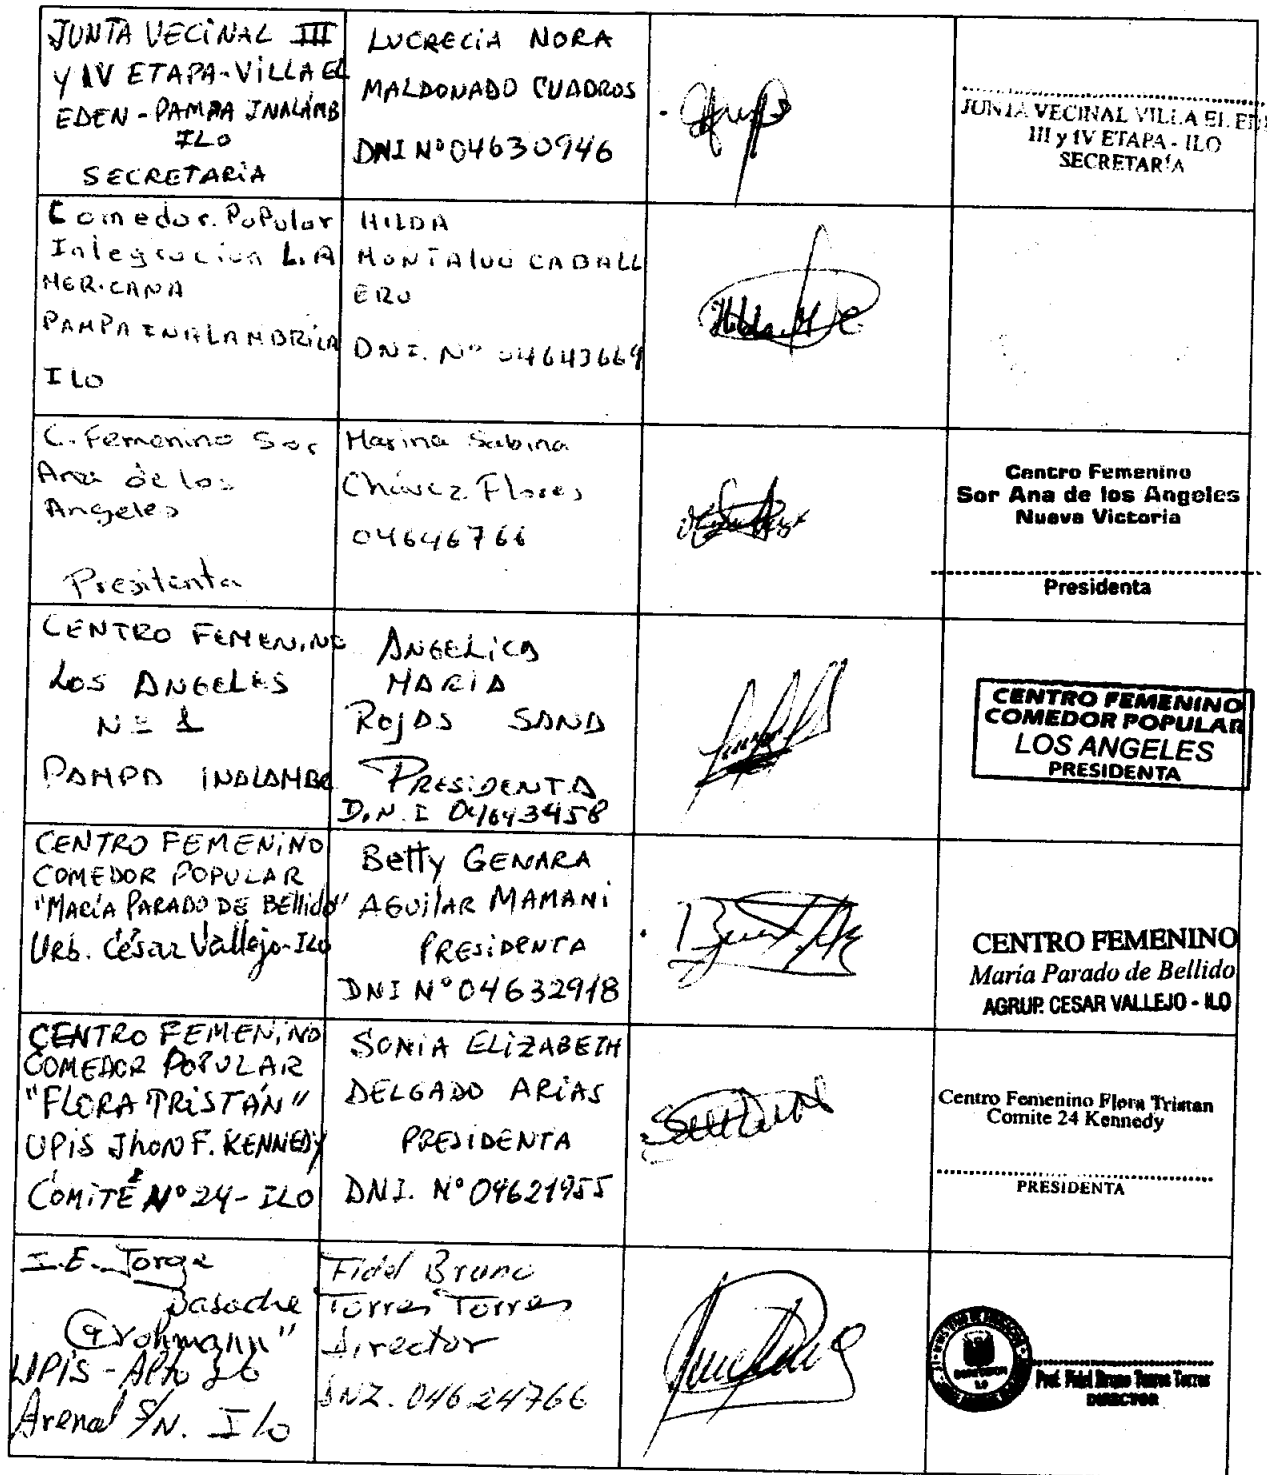 JUNTA VECINAL III
Y IV ETAPA-VILLA EL
EDEN - PAMPA INALÁMB
ILO
SECRETARIA
LUCRECIA NORA
MALDONADO CUADROS
DNI Nº 04630946
JUNTA VECINAL VILLA EL EDE
III y IV ETAPA - ILO
SECRETARÍA
Comedor. PoPular
Integracion L.A
MERICANA
PAMPA INALAMBRICA
ILO
HILDA
MONTALVO CABALL
ERO
DNI. Nº 04643669
Hilda M C
C. Femenino Sor
Ana de los
Angeles
Presitenta
Marina Sabina
Chávez Flores
04646766
Centro Femenino
Sor Ana de los Angeles
Nueva Victoria
Presidenta
CENTRO FEMENINO
LOS ANGELES
Nº 1
PAMPA INALAMBR
ANGELICA
MARIA
ROJAS SANA
PRESIDENTA
D.N.I 04643458
CENTRO FEMENINO
COMEDOR POPULAR
LOS ANGELES
PRESIDENTA
CENTRO FEMENINO
COMEDOR POPULAR
"MARÍA PARADO DE BEllido"
Urb. César Vallejo-Ilo
Betty GENARA
AGUILAR MAMANI
PRESIDENTA
DNI Nº 04632918
CENTRO FEMENINO
María Parado de Bellido
AGRUP. CESAR VALLEJO - ILO
CENTRO FEMENINO
COMEDOR POPULAR
"FLORA TRISTÁN"
UPIS JhON F. KENNEDY
COMITÉ Nº 24 - ILO
SONIA ELIZABETH
DELGADO ARIAS
PRESIDENTA
DNI. Nº 04621955
Centro Femenino Flora Tristan
Comite 24 Kennedy
PRESIDENTA
I.E. Jorge
Basadre
Grohmann"
UPIS - Alto
Arenal S/N. Ilo
Fidel Bruno
Torres Torres
Director
DNI. 04624766
Prof. Fidel Bruno Torres Torres
DIRECTOR